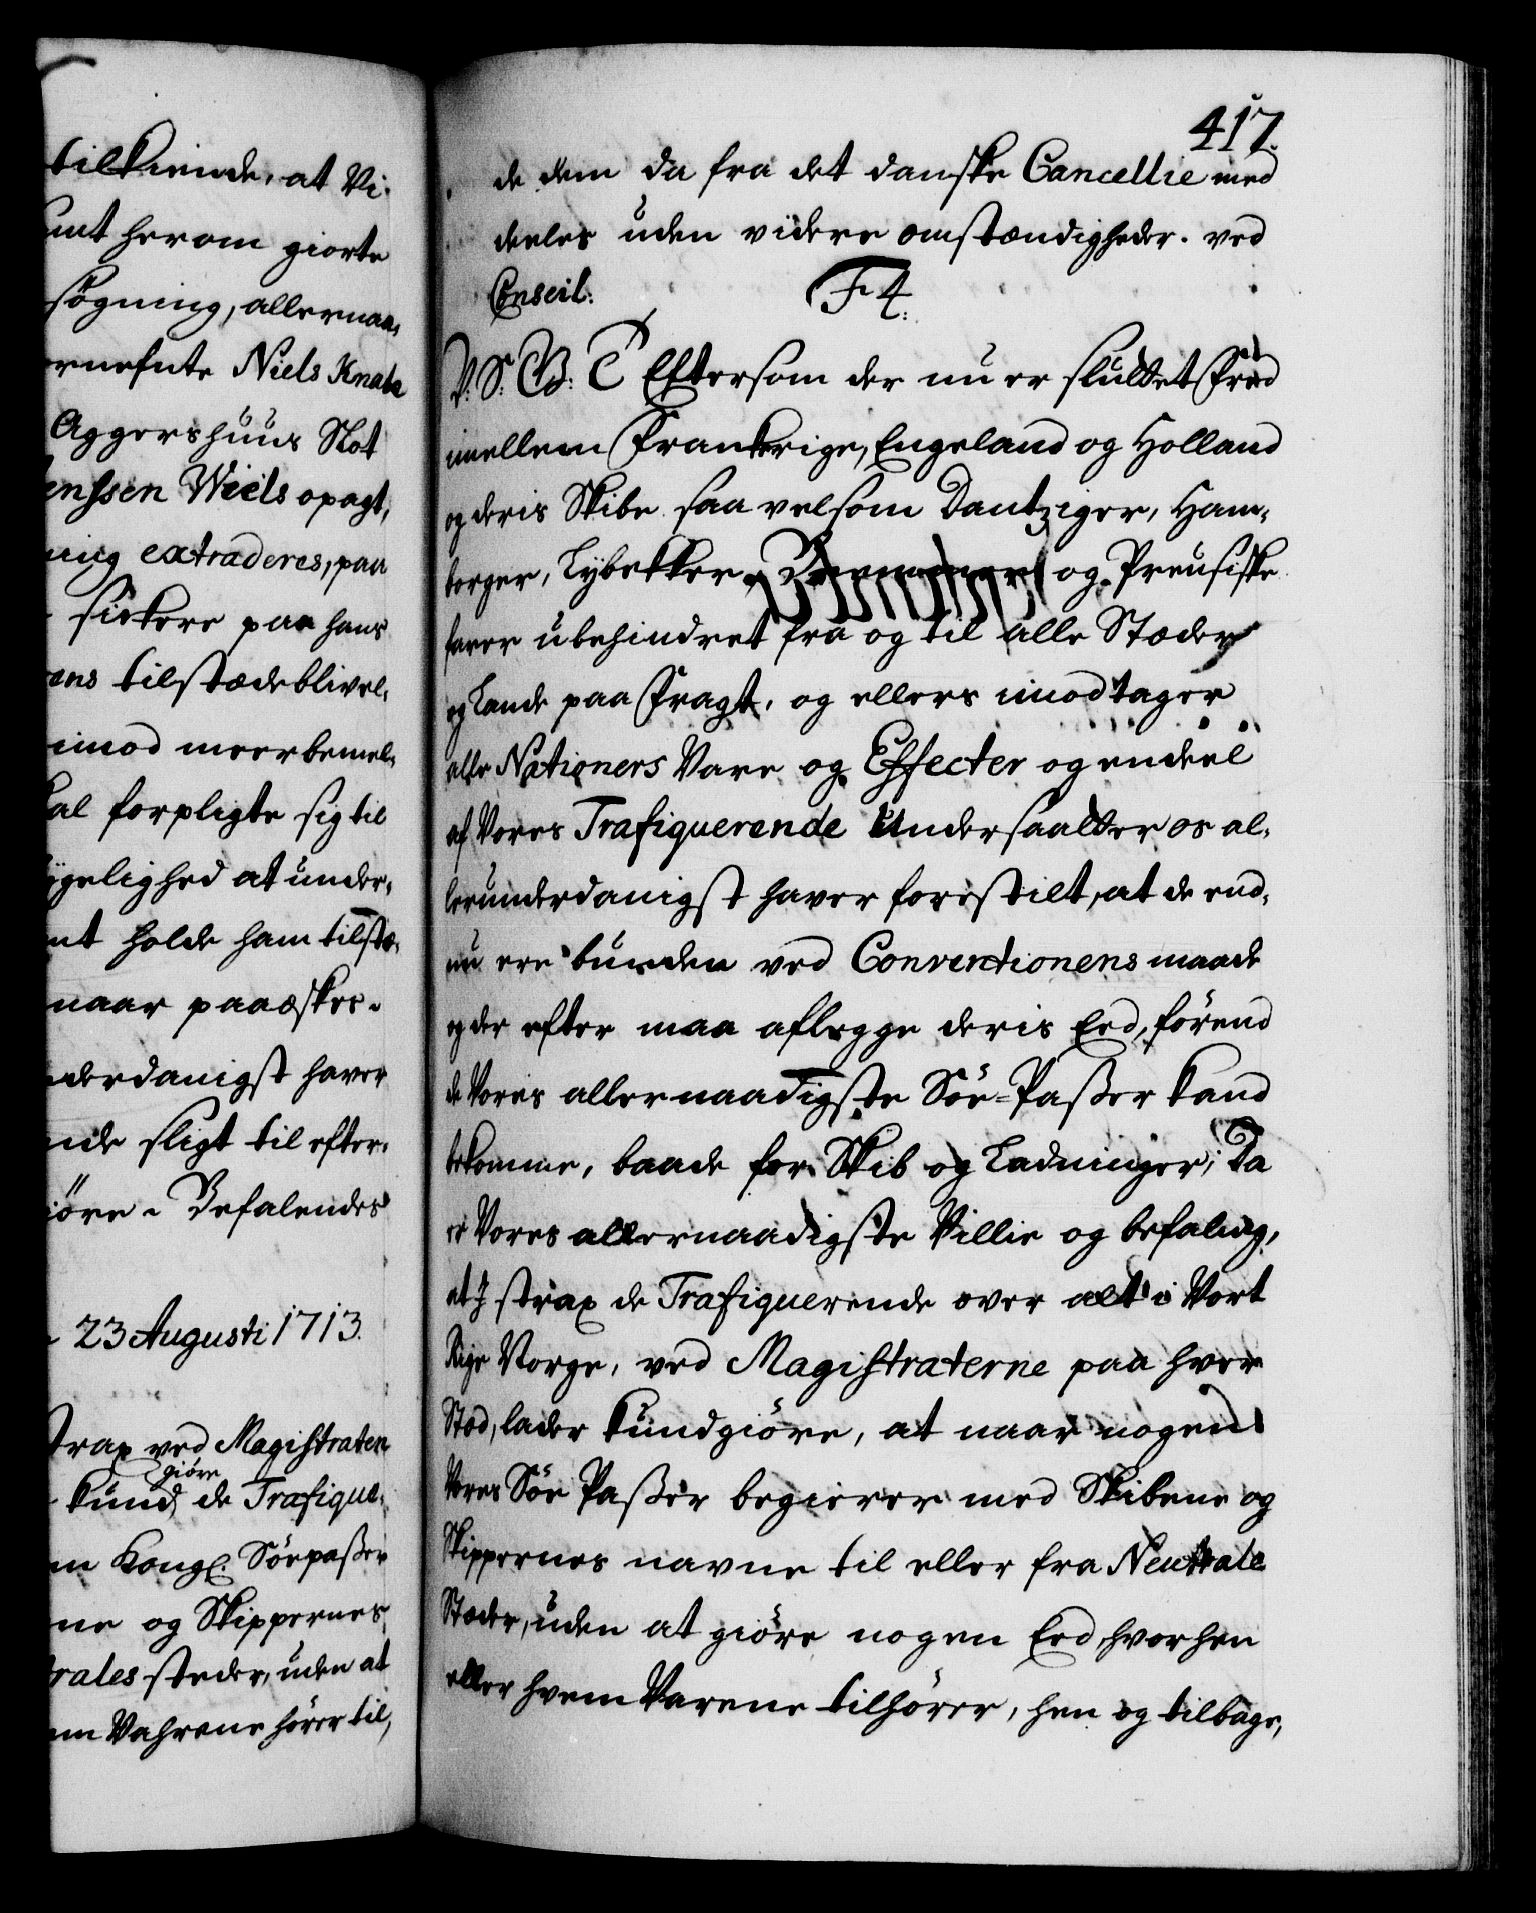 tilkiende, at Vi
umt herom giorte
søgning, allernaa-
ernefnte Niels Knabe
Aggershuus Slot
enssen Wiels opagt,
ning extraderes, paa
sickere paa hans
ens tilstædeblivel-
imod meerbemel-
kal forpligte sig til
ygelighed at under-
nt holde ham tilstæ-
naar paaæskes.
nderdanigst haver
nde sligt til efter-
iöre. Befalendes
23 Augusti 1713.
strax ved Magistraten
giöre
kund de Trafique-
m Kongl. Söepasser
ne og Skippernes
trales steder, uden at
em Vahrene hörer til,
417.
de dem da fra det danske Cancellie med
deeles uden videre omstændigheder. ved
Conseil. F 4.
V. S. G. B: C Eftersom der nu er sluttet Fred
imellem Frankerige, Engeland og Holland
og deris Skibe saa velsom Dantziger, Ham-
borger, Lybekker, Bremmer og Preusiske
farer ubehindret fra og til alle Stæder
og Lande paa Fragt, og ellers imodtager
alle Nationers Vare og Effecter og endeel
af Vores Trafiquerende Undersaatter os al-
lerunderdanigst haver forestilt, at de end-
nu ere bunden ved Conventionens maade
og der efter maa aflegge deris Eed, förend
de Voris allernaadigste Söe-Passer kand
bekomme, baade for Skib og Ladninger; Da
er Vores allernaadigste Villie og befaling,
at I strax de Trafiquerende over alt i Vort
Rige Norge, ved Magistraterne paa hver
Stæd, lader kundgiöre, at naar nogen
Vores Söe Passer begierer med Skibene og
Skippernes navne til eller fra Neutrale
Stæder, uden at giöre nogen Eed, hvorhen
eller hvem Varene tilhörer, hen og tilbage,